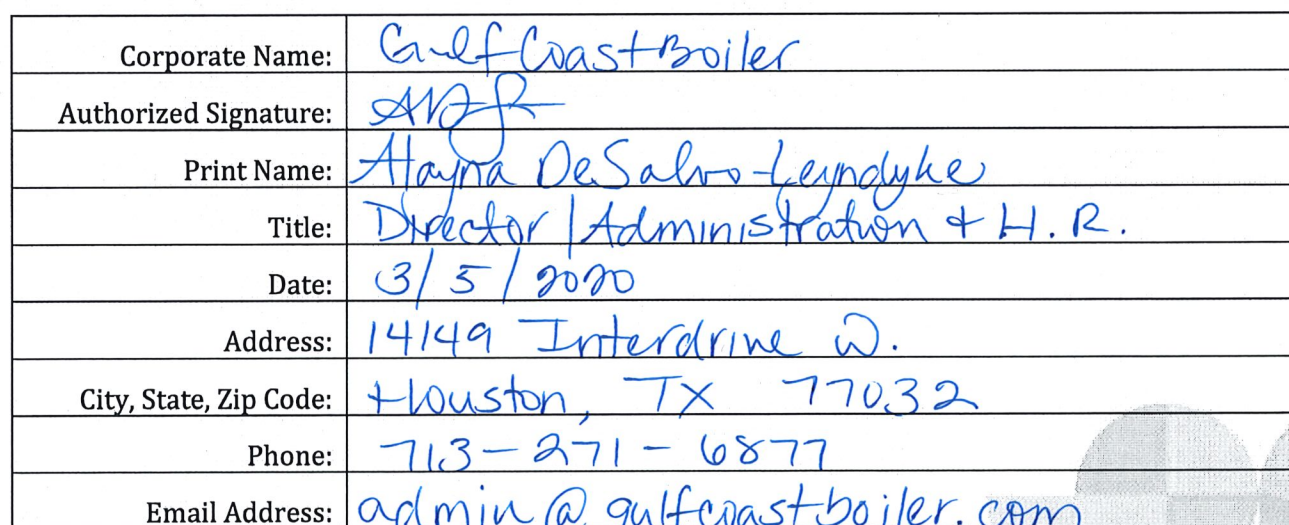 Corporate Name: Gulf Coast Boiler
Authorized Signature:
Print Name: Alayna DeSalvo-Leyndyke
Title: Director | Administration + H.R.
Date: 3/5/2020
Address: 14149 Interdrive W.
City, State, Zip Code: Houston, TX 77032
Phone: 713-271-6877
Email Address: admin@gulfcoastboiler.com